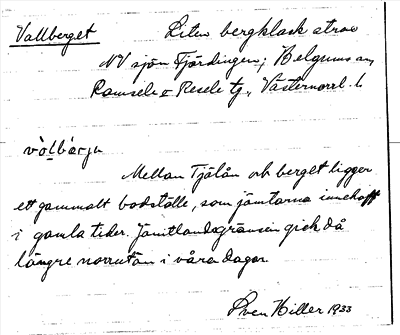 Vallberget
Liten bergklack strax
NV sjön Fjärdingen; Helgums sn,
Ramsele o Resele tg, Västernorrl. l.
Mellan Tjälån och berget ligger
ett gammalt bodställe, som jämtarna innehaft
i gamla tider. Jämtlandsgränsen gick då
längre norrut än i våra dagar.
Sven Hiller 1933